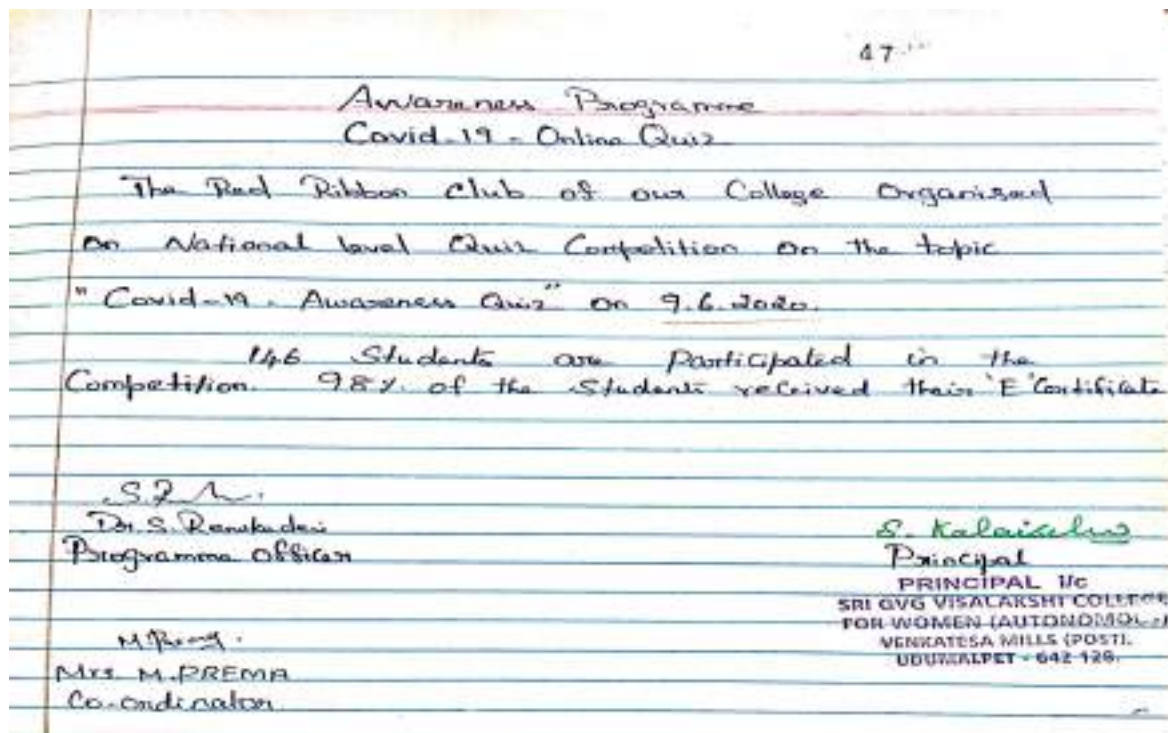 47
Awareness Programme
Covid-19 - Online Quiz
The Red Ribbon Club of our College Organised
on National level Quiz Competition on the topic
"Covid-19 - Awareness Quiz" on 9.6.2020.
146 Students are Participated in the
Competition. 98% of the Students received their 'E' Certificate
Dr. S.
Programme Officer
S. Kalaiselvi
Principal
PRINCIPAL I/c
SRI GVG VISALAKSHI COLLEGE
FOR WOMEN (AUTONOMOUS)
VENKATESA MILLS (POST),
UDUMALPET - 642 128.
Mrs. M. PREMA
Co-ordinator